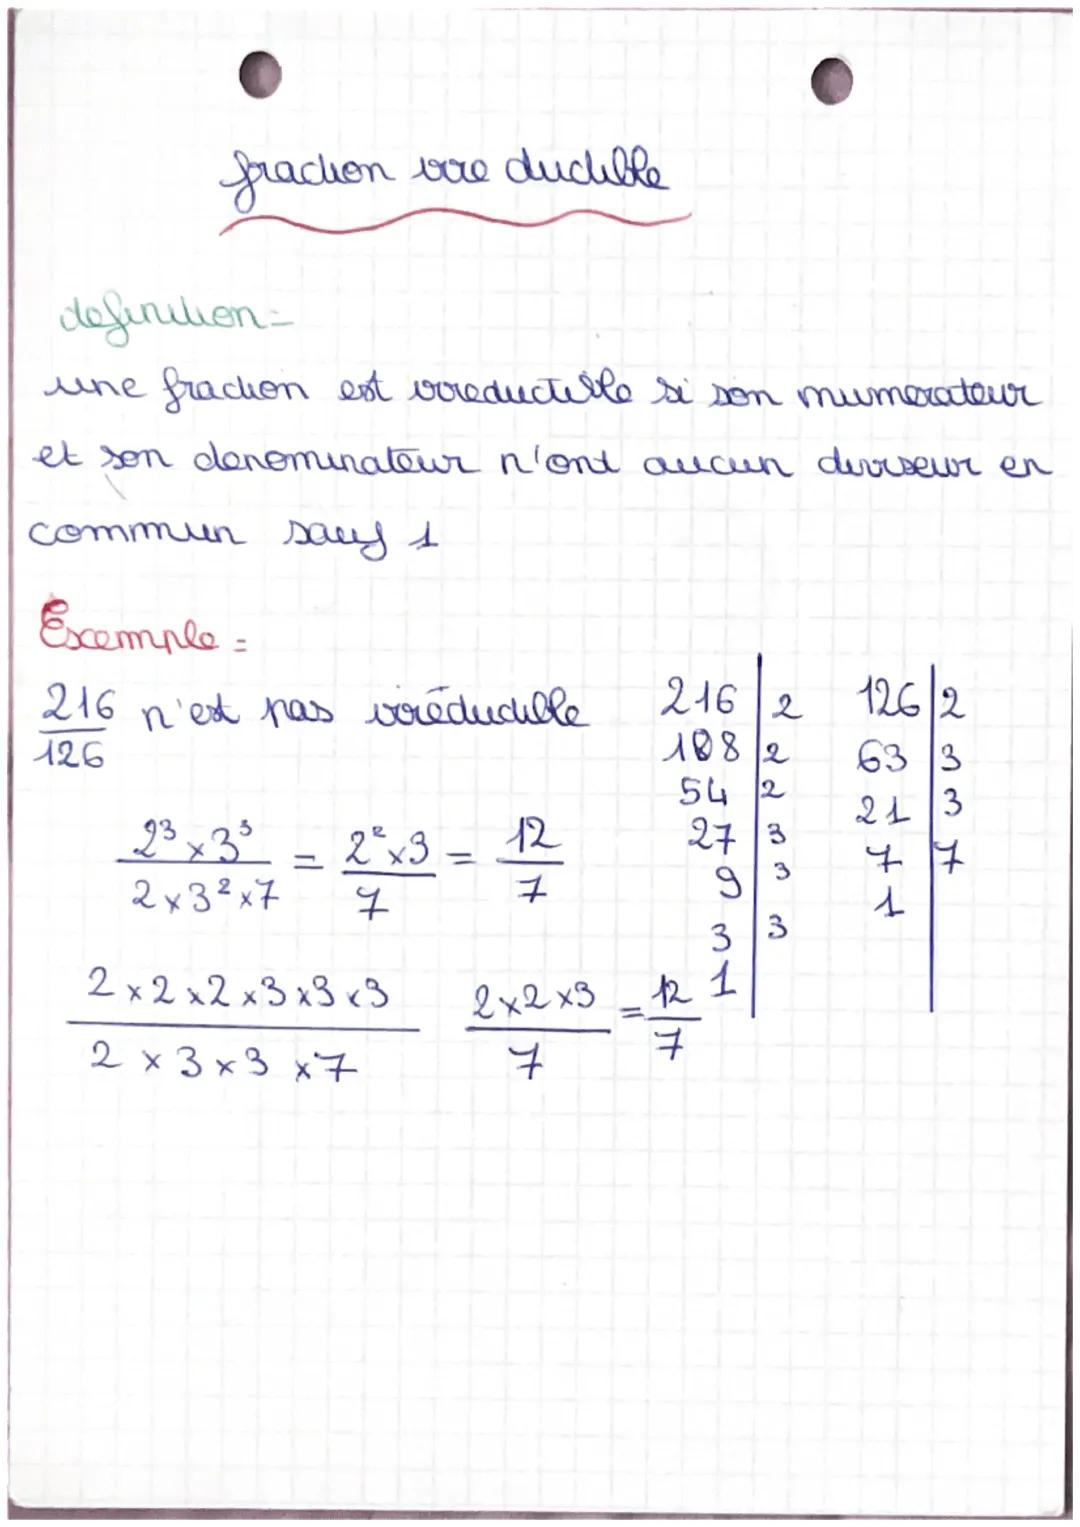 fraction irre ductible
definition =
une fraction est irreductible si son numerateur
et son denominateur n'ont aucun diviseur en
commun sauf 1
Exemple =
216/126 n'est pas irréductible
216 | 2
108 | 2
54 | 2
27 | 3
9 | 3
3 | 3
1
126 | 2
63 | 3
21 | 3
7 | 7
1
2³ × 3³ / 2 × 3² × 7 = 2² × 3 / 7 = 12 / 7
2 × 2 × 2 × 3 × 3 × 3 / 2 × 3 × 3 × 7   2 × 2 × 3 / 7 = 12 / 7